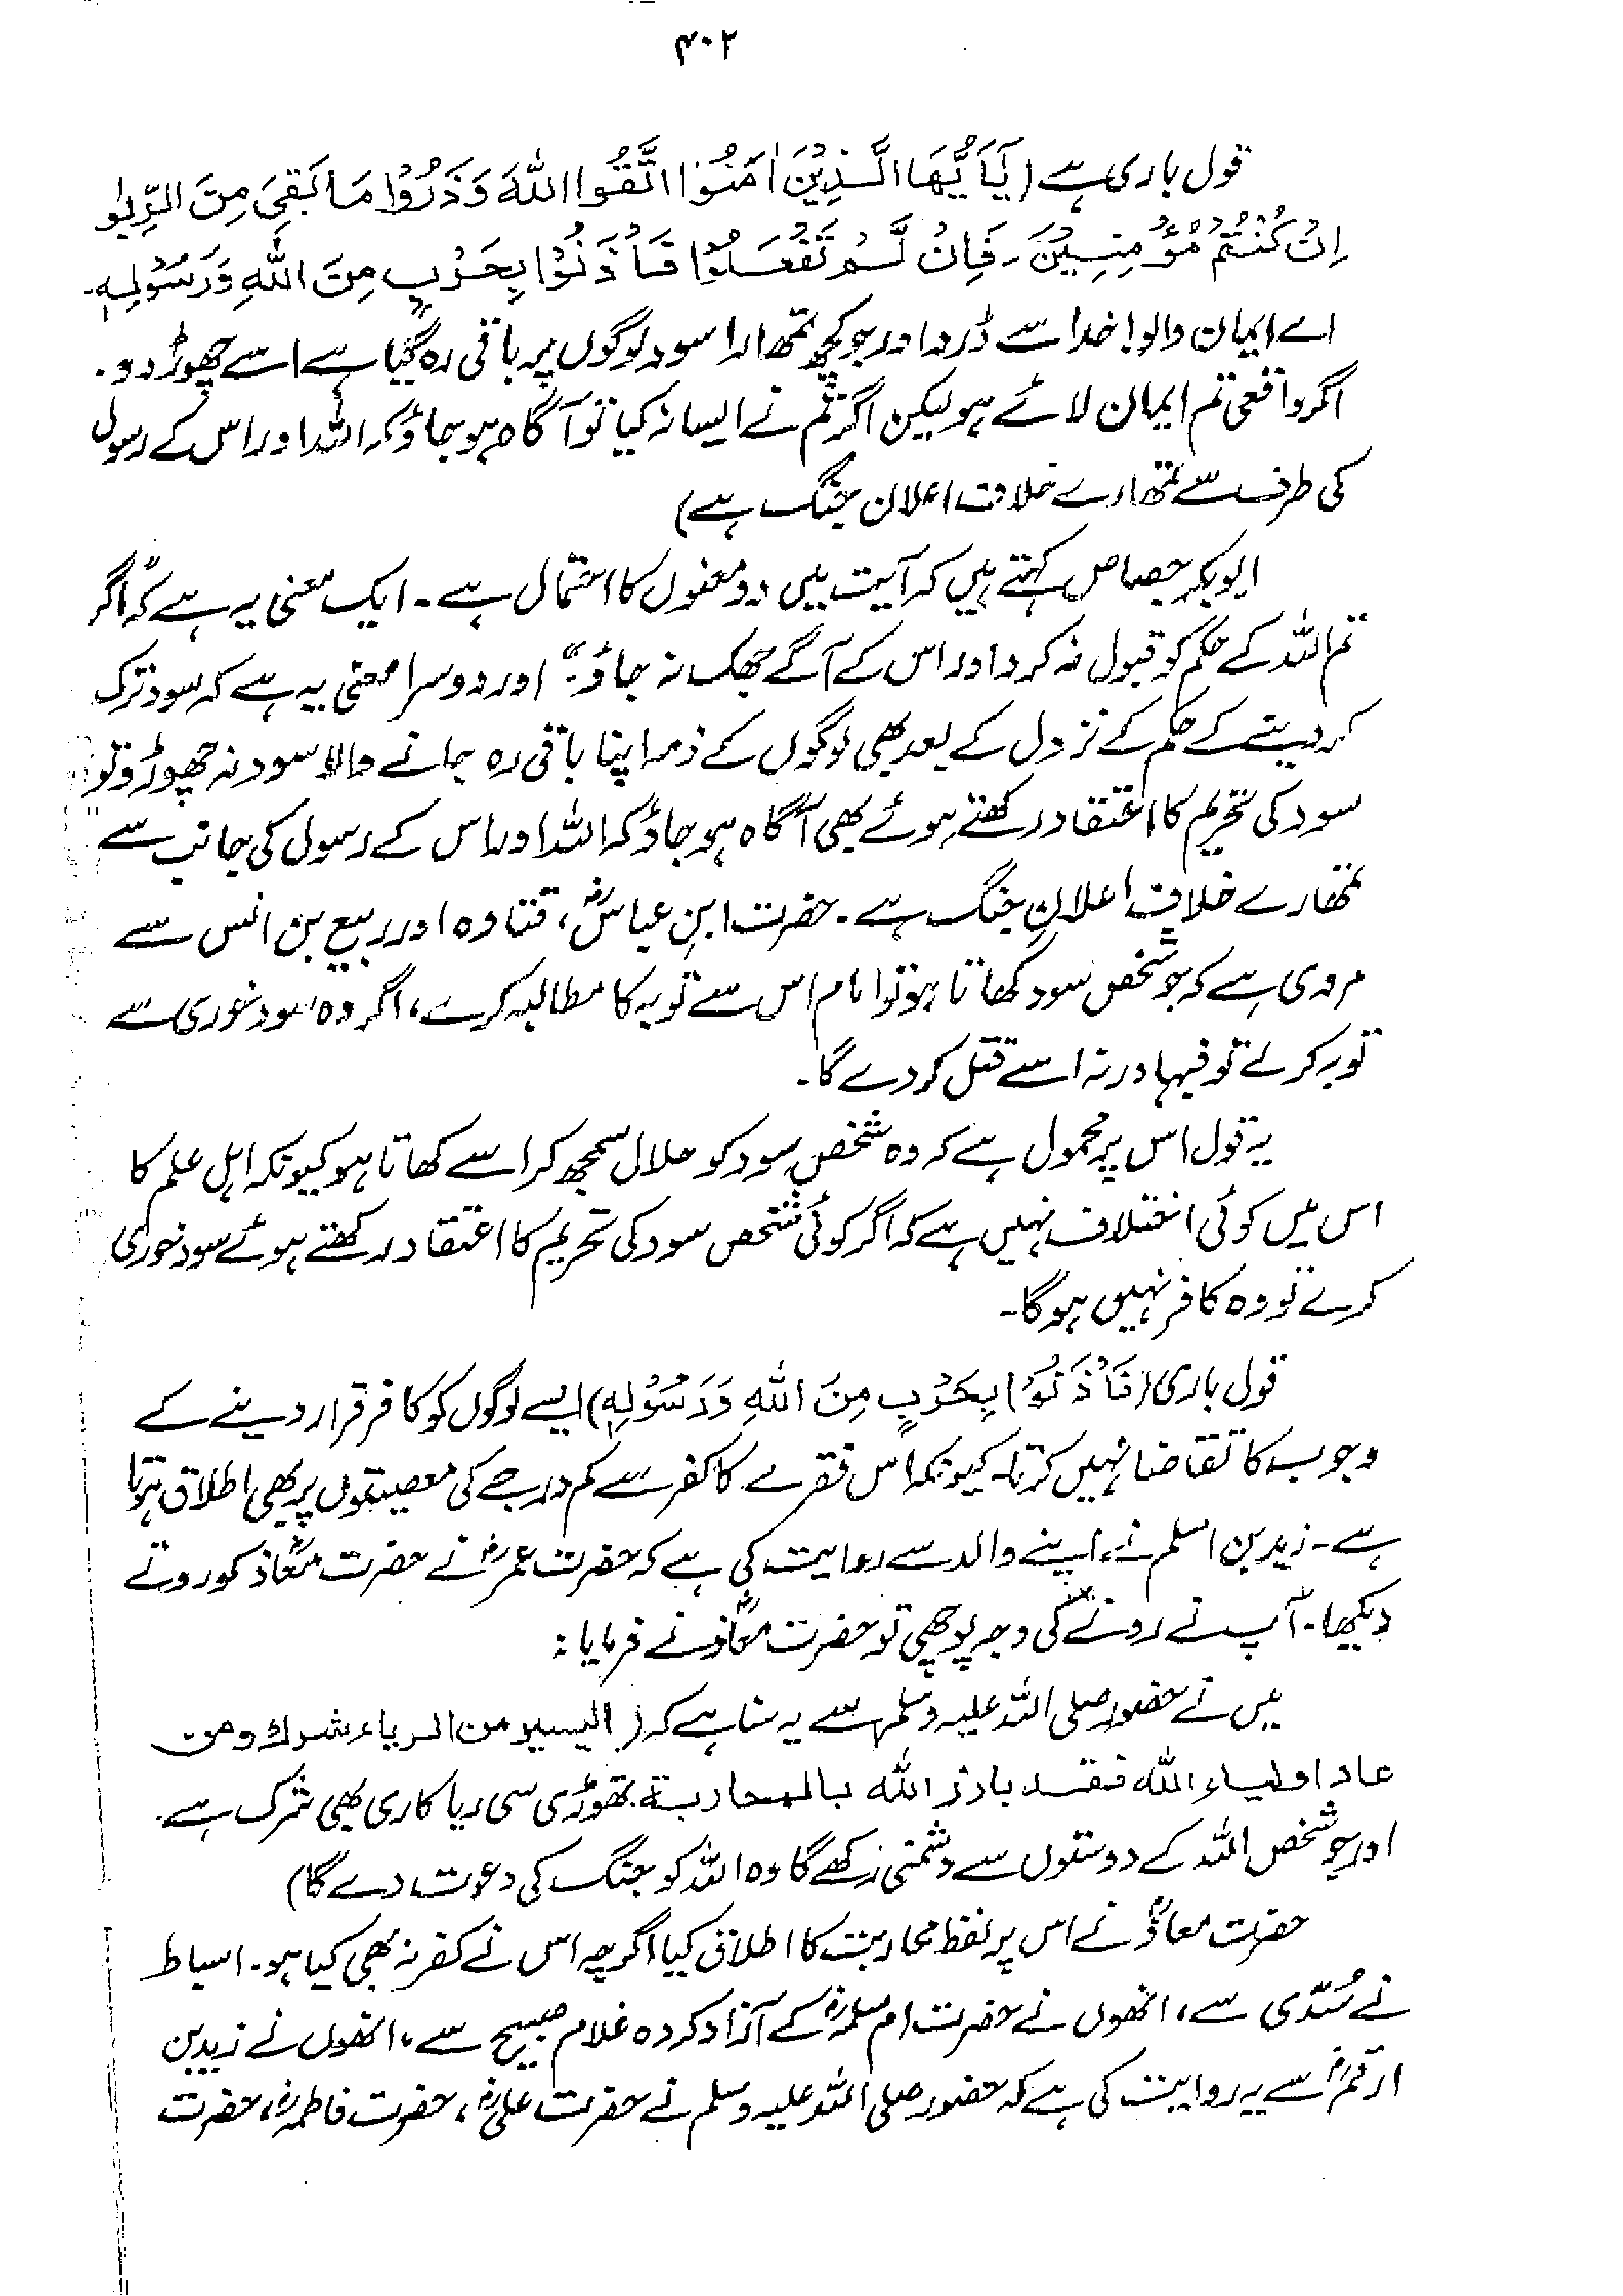 ۴۰۲
قول باری ہے (یٰٓاَ یُّھَا الَّذِیْنَ اٰمَنُوا اتَّقُوا اللّٰہَ وَذَرُوْا مَا بَقِیَ مِنَ الرِّبٰو
اِنْ کُنْتُمْ مُؤْمِنِیْنَ۔ فَاِنْ لَّمْ تَفْعَلُوْا فَأْذَنُوْا بِحَرْبٍ مِنَ اللّٰہِ وَرَسُوْلِہٖ۔
اے ایمان والو! خدا سے ڈرو اور جو کچھ تمھارا سود لوگوں پر باقی رہ گیا ہے اسے چھوڑ دو۔
اگر واقعی تم ایمان لائے ہو لیکن اگر تم نے ایسا نہ کیا تو آگاہ ہو جاؤ کہ اللہ اور اس کے رسول
کی طرف سے تمھارے خلاف اعلان جنگ ہے)
ابوبکر جصاص کہتے ہیں کہ آیت میں دو معنوں کا احتمال ہے۔ ایک معنی یہ ہے کہ "اگر
تم اللہ کے حکم کو قبول نہ کرو اور اس کے آگے جھک نہ جاؤ۔" اور دوسرا معنی یہ ہے کہ سود ترک
کر دینے کے حکم کے نزول کے بعد بھی لوگوں کے ذمہ اپنا باقی رہ جانے والا سود نہ چھوڑو تو
سود کی تحریم کا اعتقاد رکھتے ہوئے بھی آگاہ ہو جاؤ کہ اللہ اور اس کے رسول کی جانب سے
تمھارے خلاف اعلانِ جنگ ہے۔ حضرت ابنِ عباسؓ، قتادہ اور ربیع بن انس سے
مروی ہے کہ جو شخص سود کھاتا ہو تو امام اس سے توبہ کا مطالبہ کرے، اگر وہ سود خوری سے
توبہ کرلے تو فبہا ورنہ اسے قتل کر دے گا۔
یہ قول اس پر محمول ہے کہ وہ شخص سود کو حلال سمجھ کر اسے کھاتا ہو کیونکہ اہل علم کا
اس میں کوئی اختلاف نہیں ہے کہ اگر کوئی شخص سود کی تحریم کا اعتقاد رکھتے ہوئے سود خوری
کرے تو وہ کافر نہیں ہوگا۔
قول باری (فَأْذَنُوْا بِحَرْبٍ مِنَ اللّٰہِ وَرَسُوْلِہٖ) ایسے لوگوں کو کافر قرار دینے کے
وجوب کا تقاضا نہیں کرتا۔ کیونکہ اس فقرے کا کفر سے کم درجے کی معصیتوں پر بھی اطلاق ہوتا
ہے۔ زید بن اسلم نے اپنے والد سے روایت کی ہے کہ حضرت عمرؓ نے حضرت معاذؓ کو روتے
دیکھا۔ آپ نے رونے کی وجہ پوچھی تو حضرت معاذؓ نے فرمایا:
میں نے حضور صلی اللہ علیہ وسلم سے یہ سنا ہے کہ (الیسیر من الریاء شرک ومن
عاد اولیاء اللہ فقد بارز اللہ بالمحاربۃ۔ تھوڑی سی ریاکاری بھی شرک ہے۔
اور جو شخص اللہ کے دوستوں سے دشمنی رکھے گا وہ اللہ کو جنگ کی دعوت دے گا)
حضرت معاذؓ نے اس پر لفظ محاربت کا اطلاق کیا اگرچہ اس نے کفر نہ بھی کیا ہو۔ اسباط
نے سُدّی سے، انھوں نے حضرت ام سلمہؓ کے آزاد کردہ غلام صبیح سے، انھوں نے زید بن
ارقمؓ سے یہ روایت کی ہے کہ حضور صلی اللہ علیہ وسلم نے حضرت علیؓ، حضرت فاطمہؓ، حضرت